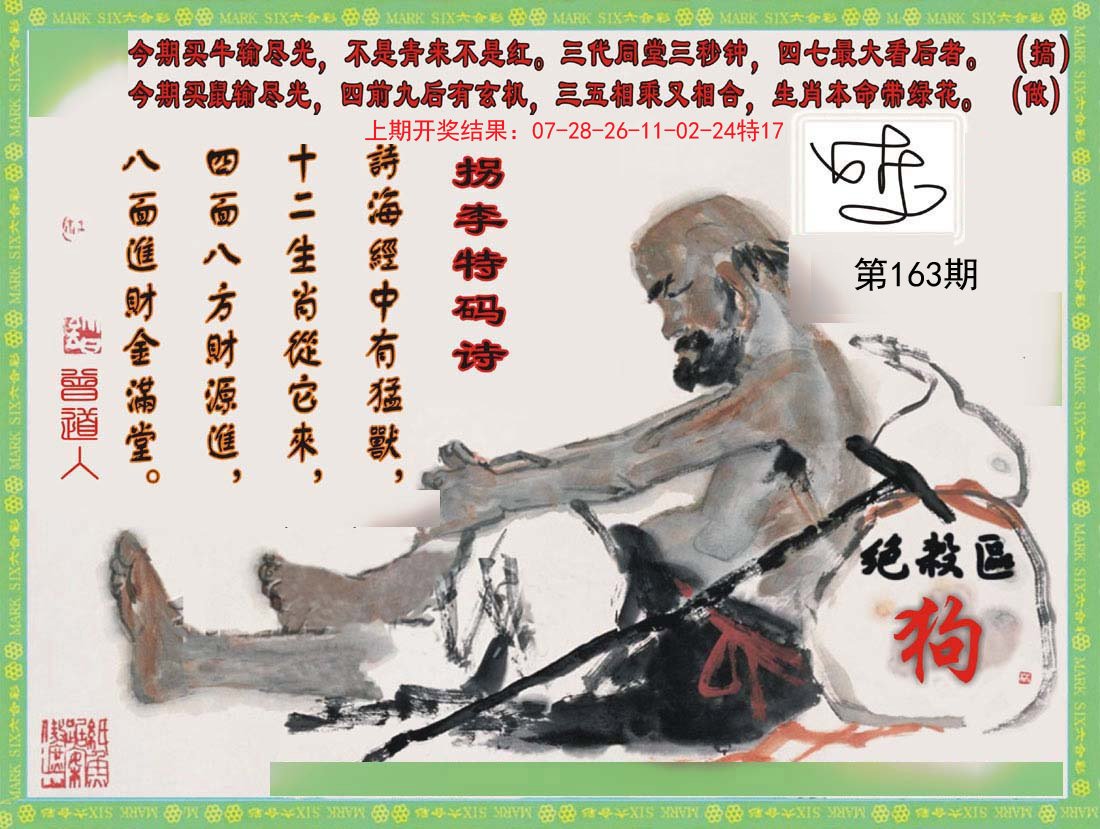 MARK SIX六合彩 MARK SIX六合彩 MARK SIX六合彩 MARK SIX六合彩 MARK SIX六合彩 MARK SIX六合彩 MARK SIX六合彩
今期买牛输尽光，不是青来不是红。三代同堂三秒钟，四七最大看后者。（搞）
今期买鼠输尽光，四前九后有玄机，三五相乘又相合，生肖本命带绿花。（做）
上期开奖结果：07-28-26-11-02-24特17
第163期
拐李特码诗
詩海經中有猛獸，
十二生肖從它來，
四面八方財源進，
八面進財金滿堂。
曾道人
绝殺區
狗